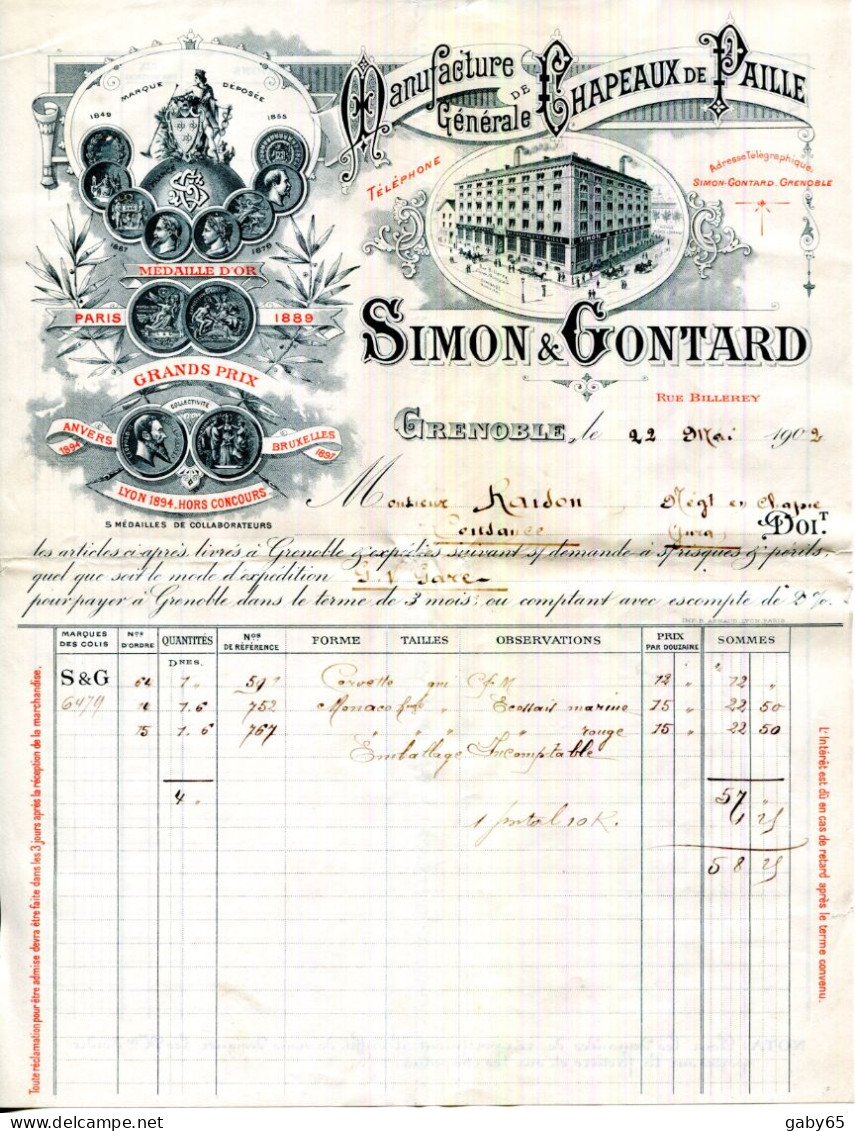 Manufacture Générale DE CHAPEAUX DE PAILLE
MARQUE DÉPOSÉE
1849
1855
1867
1878
TÉLÉPHONE
Adresse Télégraphique:
SIMON-GONTARD.GRENOBLE
MEDAILLE D'OR
PARIS
1889
GRANDS PRIX
COLLECTIVITÉ
ANVERS
1894
BRUXELLES
1897
LYON 1894. HORS CONCOURS
5 MÉDAILLES DE COLLABORATEURS
SIMON & GONTARD
RUE BILLEREY
GRENOBLE, le 22 Mai 1902
Monsieur Raidon Négt en Chapie
Cousance Jura DOIT
les articles ci-après, livrés à Grenoble & expédiés suivant s/ demande à s/ risques & périls,
quel que soit le mode d'expédition G.V Gare
pour payer à Grenoble dans le terme de 3 mois ou comptant avec escompte de 2 %.
MARQUES DES COLIS
Nos D'ORDRE
QUANTITÉS
Nos DE RÉFÉRENCE
FORME
TAILLES
OBSERVATIONS
PRIX PAR DOUZAINE
SOMMES
DNES.
S&G 1 " 12 " 12 "
6479 1.6 752 Monaco " Ecossais marine 15 " 22 50
15 1.6 767 " " " rouge 15 " 22 50
Emballage Incomptable
4 " 57 "
1 postal 10 K. 1 25
58 25
Toute réclamation pour être admise devra être faite dans les 3 jours après la réception de la marchandise.
L'Intérêt est dû en cas de retard après le terme convenu.
delcampe.net
gaby65